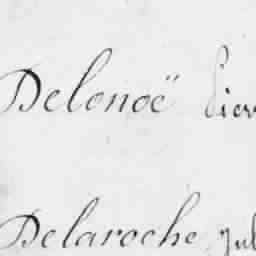 Delonoë Pier
Delaroche Jul